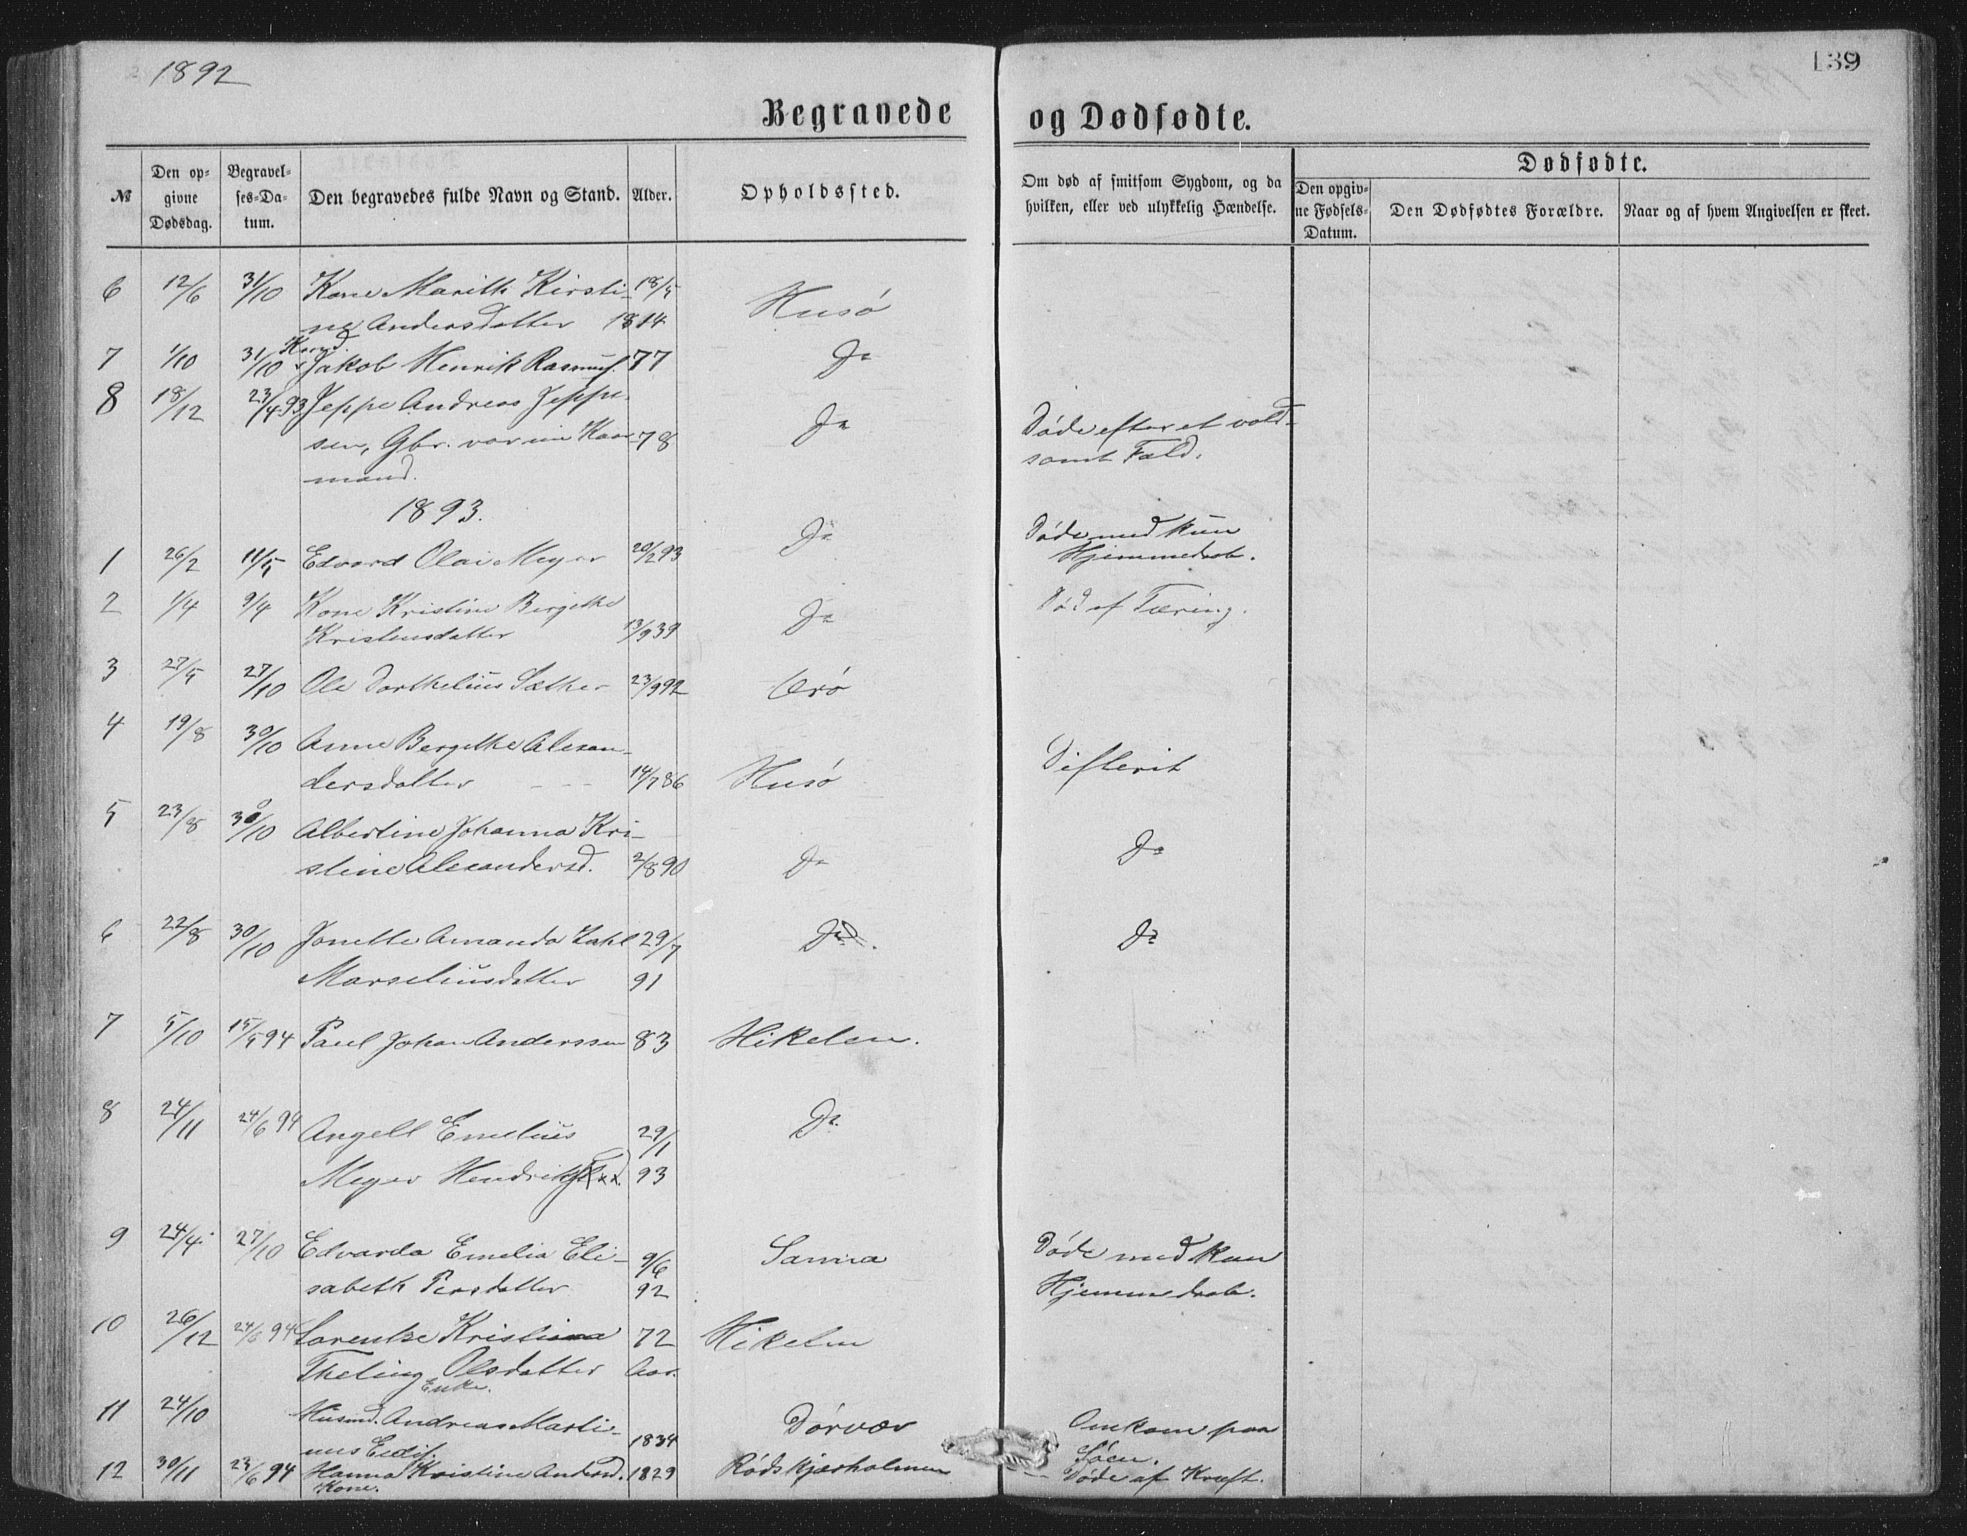 1892
139
Begravede og Dødfødte.
№
Den op-
givne
Dødsdag.
Begravel-
ses-Da-
tum.
Den begravedes fulde Navn og Stand.
Alder.
Opholdssted.
Om død af smitsom Sygdom, og da
hvilken, eller ved ulykkelig Hændelse.
Dødfødte.
Den opgiv-
ne Fødsels-
Datum.
Den Dødfødtes Forældre.
Naar og af hvem Angivelsen er skeet.
6 12/6 31/10 Kone Marith Kirsti- 18/5
ne Andersdatter 1814 Husø
7 1/10 31/10 Jakob Henrik Rasmus. 77 Do
8 18/12 23/4 93 Jeppe Andreas Jeppe-
sen, Gbr. var en Kaar- 78 Do Døde efter et vold-
mand. somt Fald.
1893.
1 26/2 11/5 Edvard Olai Meyer 20/2 93 Do Døde med kun
Hjemmedaab.
2 1/4 9/4 Kone Kristine Bergithe
Kristensdatter 13/9 39 Do Død af Tæring.
3 27/5 27/10 Ole Dorthelius Sæther 23/9 92
4 19/8 30/10 Anne Bergithe Alexan-
dersdatter 14/7 86 Husø Difterit
5 23/8 30/10 Albertine Johanna Kri-
stine Alexandersd. 2/8 90 Do Do
6 22/8 30/10 Jonette Amanda Zahl 29/7 Do. Do
Marseliusdatter 91
7 5/10 15/5 94 Paul Johan Anderssen 83 Hikelen.
8 24/11 24/6 94 Angell Emelius 29/1 Do.
Meyer 93
9 24/4 27/10 Edvarda Emelia Eli- 9/6 Sanna Døde med kun
sabeth Persdatter 92 Hjemmedaab.
10 26/12 24/6 94 Lorentze Kristiana 72 Hikelen
Theting Olsdatter Aar.
Enke.
11 24/10 Husmd. Andreas Marti- 1834 Dørvær Omkom paa
nus Søen.
12 30/11 23/6 94 Hanna Kristine Andersd. 1829 Rødskjærholmen Døde af Kræft.
Kone.